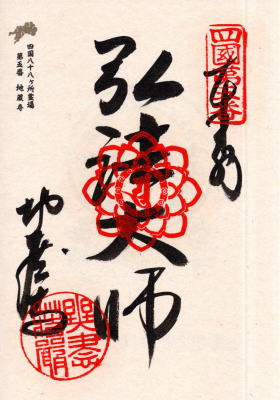 四国八十八ヶ所霊場
第五番 地蔵寺
四國第五番
奉拝
弘法大師
地蔵寺